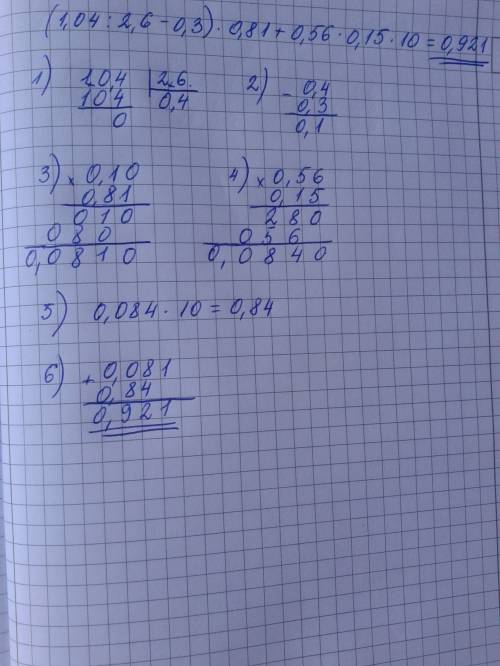 (1,04 : 2,6 - 0,3) · 0,81 + 0,56 · 0,15 · 10 = 0,921
1) 10,4 | 2,6
104 0,4
0
2) - 0,4
0,3
0,1
3) × 0,10
0,81
010
080
0,0810
4) × 0,56
0,15
280
056
0,0840
5) 0,084 · 10 = 0,84
6) + 0,081
0,84
0,921